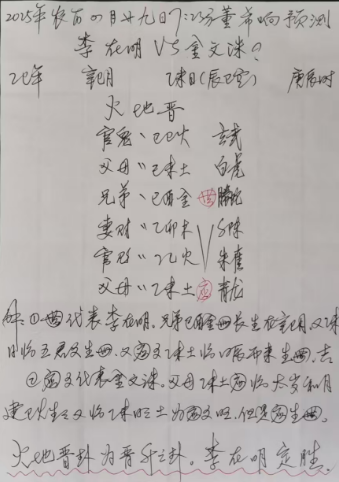 2025年农历四月廿九日7:25分董
预测
李在明 VS 金文洙?
乙巳年 辛巳月 乙未日(辰巳空) 庚辰时
火地晋
官鬼〃己巳火 玄武
父母〃己未土 白虎
兄弟、己酉金 世 腾蛇
妻财〃乙卯木
官鬼〃乙巳火 朱雀
父母〃乙未土 应 青龙
①世代表李在明,兄弟己酉金世长生在辛巳月,又乙未
日
②应爻代表金文洙,父母乙未土应临太岁和月
建巳火生之又临乙未日土为应爻旺,但是应生世。
火地晋卦为晋升之卦,李在明定胜。